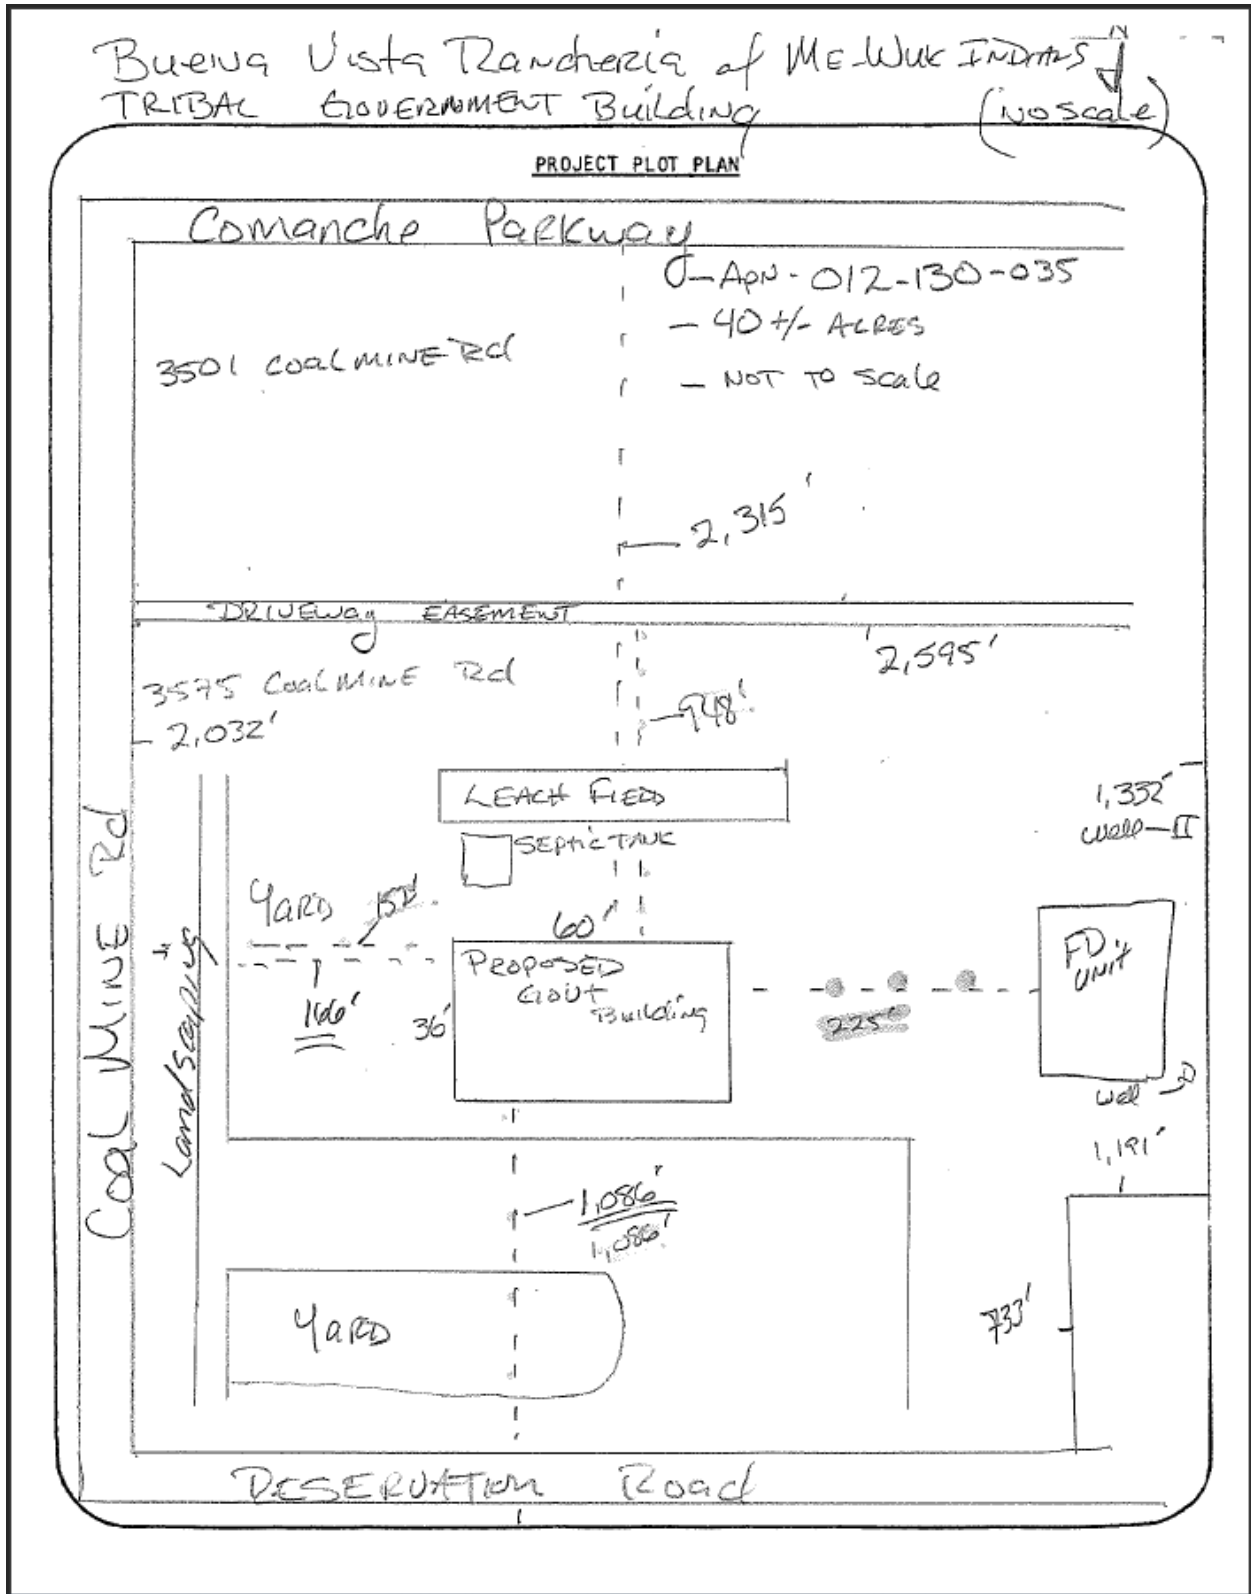 Buena Vista Rancheria of ME-WUK INDIANS
N
TRIBAL GOVERNMENT Building
(NO scale)
PROJECT PLOT PLAN
Comanche Parkway
- APN - 012-130-035
- 40 +/- ACRES
- NOT TO scale
3501 COAL MINE Rd
2,315'
DRIVEWay EASEMENT
2,595'
3575 COAL MINE Rd
- 2,032'
948'
LEACH FIELD
1,332'
well-II
SEPTIC TANK
YARD 152'
60'
PROPOSED
GOVT
Building
166'
36'
225'
FD
UNIT
well
1,191'
Coal MINE Rd
Landscaping
1,086'
1,086'
YARD
733'
RESERVATION Road